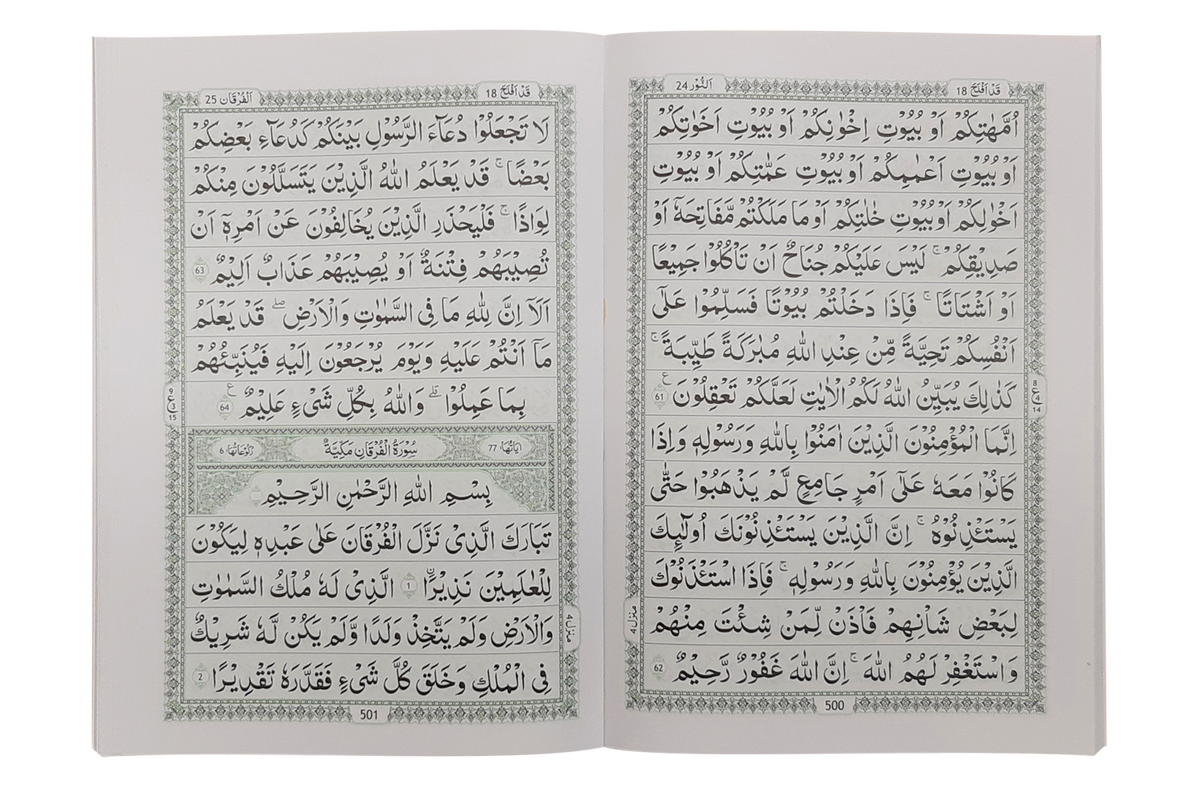 قَدْ اَفْلَحَ 18
اَلنُّوْر 24
اُمَّهٰتِكُمْ اَوْ بُيُوْتِ اِخْوَانِكُمْ اَوْ بُيُوْتِ اَخَوٰتِكُمْ
اَوْ بُيُوْتِ اَعْمَامِكُمْ اَوْ بُيُوْتِ عَمّٰتِكُمْ اَوْ بُيُوْتِ
اَخْوَالِكُمْ اَوْ بُيُوْتِ خٰلٰتِكُمْ اَوْ مَا مَلَكْتُمْ مَّفَاتِحَهٗۤ اَوْ
صَدِيْقِكُمْ ؕ لَيْسَ عَلَيْكُمْ جُنَاحٌ اَنْ تَاْكُلُوْا جَمِيْعًا
اَوْ اَشْتَاتًا ؕ فَاِذَا دَخَلْتُمْ بُيُوْتًا فَسَلِّمُوْا عَلٰۤى
اَنْفُسِكُمْ تَحِيَّةً مِّنْ عِنْدِ اللّٰهِ مُبٰرَكَةً طَيِّبَةً ؕ
كَذٰلِكَ يُبَيِّنُ اللّٰهُ لَكُمُ الْاٰيٰتِ لَعَلَّكُمْ تَعْقِلُوْنَ 61
اِنَّمَا الْمُؤْمِنُوْنَ الَّذِيْنَ اٰمَنُوْا بِاللّٰهِ وَرَسُوْلِهٖ وَاِذَا
كَانُوْا مَعَهٗ عَلٰۤى اَمْرٍ جَامِعٍ لَّمْ يَذْهَبُوْا حَتّٰى
يَسْتَاْذِنُوْهُ ؕ اِنَّ الَّذِيْنَ يَسْتَاْذِنُوْنَكَ اُولٰٓئِكَ
الَّذِيْنَ يُؤْمِنُوْنَ بِاللّٰهِ وَرَسُوْلِهٖ ۚ فَاِذَا اسْتَاْذَنُوْكَ
لِبَعْضِ شَاْنِهِمْ فَاْذَنْ لِّمَنْ شِئْتَ مِنْهُمْ
وَاسْتَغْفِرْ لَهُمُ اللّٰهَ ؕ اِنَّ اللّٰهَ غَفُوْرٌ رَّحِيْمٌ 62
8
ع
4
14
منزل 4
500
قَدْ اَفْلَحَ 18
اَلْفُرْقَان 25
لَا تَجْعَلُوْا دُعَآءَ الرَّسُوْلِ بَيْنَكُمْ كَدُعَآءِ بَعْضِكُمْ
بَعْضًا ؕ قَدْ يَعْلَمُ اللّٰهُ الَّذِيْنَ يَتَسَلَّلُوْنَ مِنْكُمْ
لِوَاذًا ۚ فَلْيَحْذَرِ الَّذِيْنَ يُخَالِفُوْنَ عَنْ اَمْرِهٖۤ اَنْ
تُصِيْبَهُمْ فِتْنَةٌ اَوْ يُصِيْبَهُمْ عَذَابٌ اَلِيْمٌ 63
اَلَاۤ اِنَّ لِلّٰهِ مَا فِى السَّمٰوٰتِ وَالْاَرْضِ ؕ قَدْ يَعْلَمُ
مَاۤ اَنْتُمْ عَلَيْهِ وَيَوْمَ يُرْجَعُوْنَ اِلَيْهِ فَيُنَبِّئُهُمْ
بِمَا عَمِلُوْا ؕ وَاللّٰهُ بِكُلِّ شَىْءٍ عَلِيْمٌ 64
9
ع
3
15
اٰيَاتُهَا، 77 سُوْرَةُ الْفُرْقَانِ مَكِّيَّةٌ رُكُوْعَاتُهَا، 6
بِسْمِ اللّٰهِ الرَّحْمٰنِ الرَّحِيْمِ
تَبَارَكَ الَّذِىْ نَزَّلَ الْفُرْقَانَ عَلٰى عَبْدِهٖ لِيَكُوْنَ
لِلْعٰلَمِيْنَ نَذِيْرًا 1 الَّذِىْ لَهٗ مُلْكُ السَّمٰوٰتِ
وَالْاَرْضِ وَلَمْ يَتَّخِذْ وَلَدًا وَّلَمْ يَكُنْ لَّهٗ شَرِيْكٌ
فِى الْمُلْكِ وَخَلَقَ كُلَّ شَىْءٍ فَقَدَّرَهٗ تَقْدِيْرًا 2
منزل 4
501